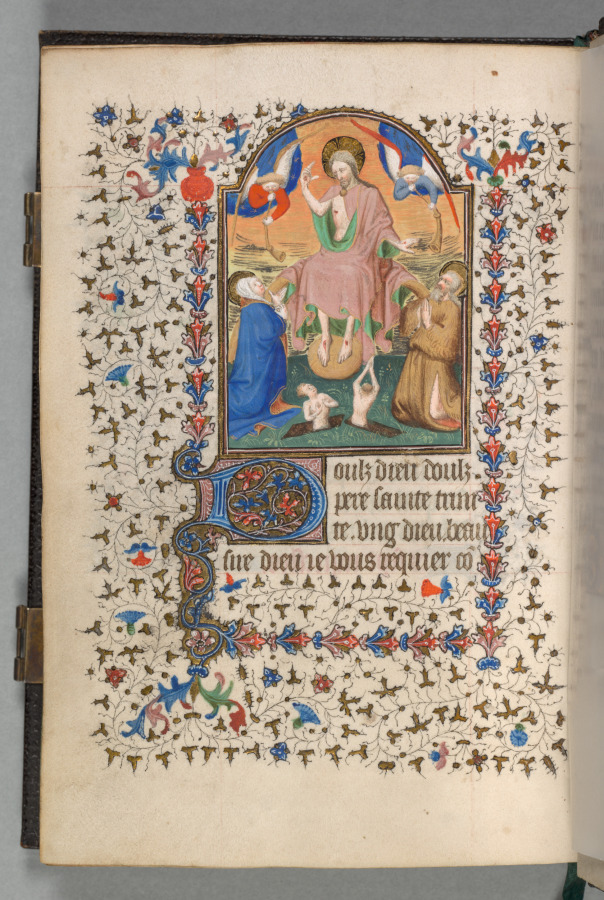 Doulz dieu doulz
pere sainte trini
te. vng dieu. beau
sire dieu ie vous requier cō